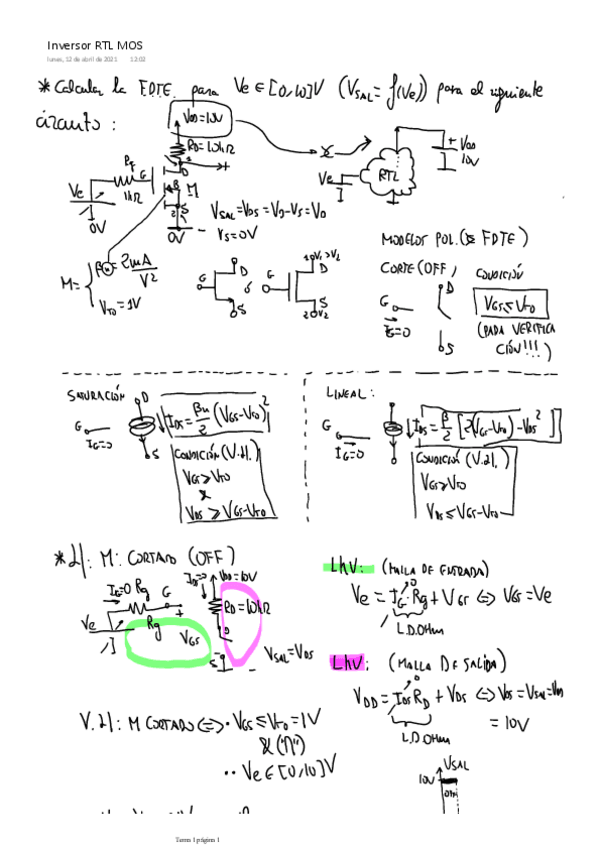 Inversor RTL MOS
lunes, 12 de abril de 2021 12:02
* Calcular la F.D.T.E. para Ve ∈ [0,10]V (VSAL = f(Ve)) para el siguiente
circuito:
VDD=10V
RD=10kΩ
Rg G
1kΩ
D
B M
S
Ve
0V
0V
VSAL=VDS=VD-VS=VD
VS=0V
Ve
RTL
+ VDD
10V
M=
βn=2mA/V²
VT0=1V
G D S
ó
G D S
1 V1>V2
2 V2
MODELOS POL. (& FDTE)
CORTE (OFF)
CONDICIÓN
G D
IG=0
S
VGS≤VT0
(PARA VERIFICA
CIÓN!!!)
SATURACIÓN
D
G
IG=0
S
IDS=βn/2 (VGS-VT0)²
CONDICIÓN (V.2I.)
VGS≥VT0
&
VDS≥VGS-VT0
LINEAL:
G
IG=0
IDS=β/2 [2(VGS-VT0)-VDS²]
CONDICIÓN (V.2I.)
VGS≥VT0
VDS≤VGS-VT0
* 2I: M: CORTADO (OFF)
IG=0 Rg G
Ve
Rg
VGS
IDS=0
VDD=10V
RD=10kΩ
D
S
VSAL=VDS
LhV: (MALLA DE ENTRADA)
Ve = IG·Rg + VGS ⇔ VGS=Ve
0
L.D.Ohm
LhV: (MALLA DE SALIDA)
VDD = IDS RD + VDS ⇔ VDS=VSAL=VDD
0
= 10V
L.D.Ohm
V.2I: M CORTADO ⇔ • VGS≤VT0=1V
& ("∩")
•• Ve ∈ [0,10]V
VSAL
10V
OFF
Tema 1 página 1